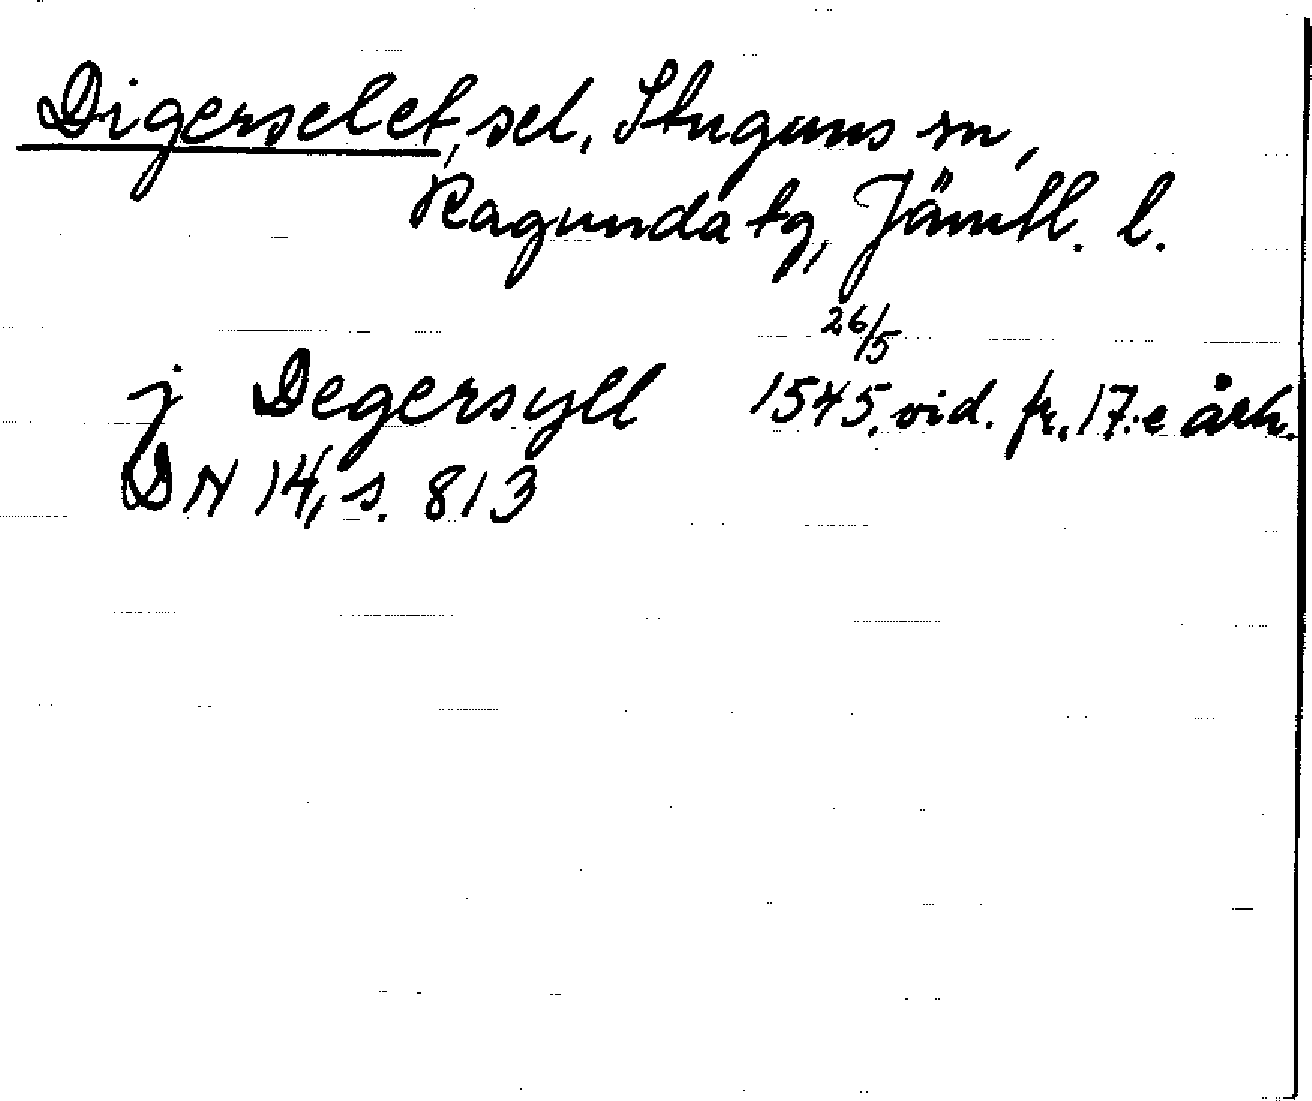 Digerselet, sel, Stuguns sn,
Ragunda tg, Jämtl. l.
j Degersyll 26/5 1545, vid. fr. 17:e årh.
DN 14, s. 813